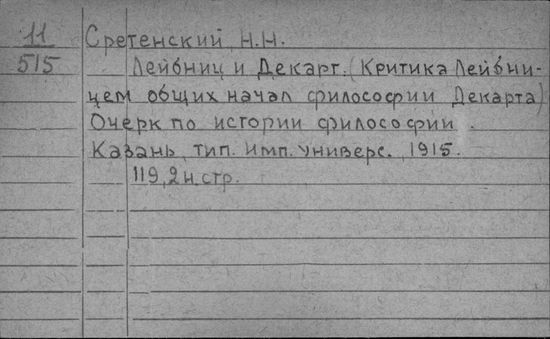 11 Сретенский, Н.Н.
515 Лейбниц и Декарт. (Критика Лейбни-
цем общих начал философии Декарта)
Очерк по истории философии.
Казань, тип. Имп. универс., 1915.
119, 2 н. стр.